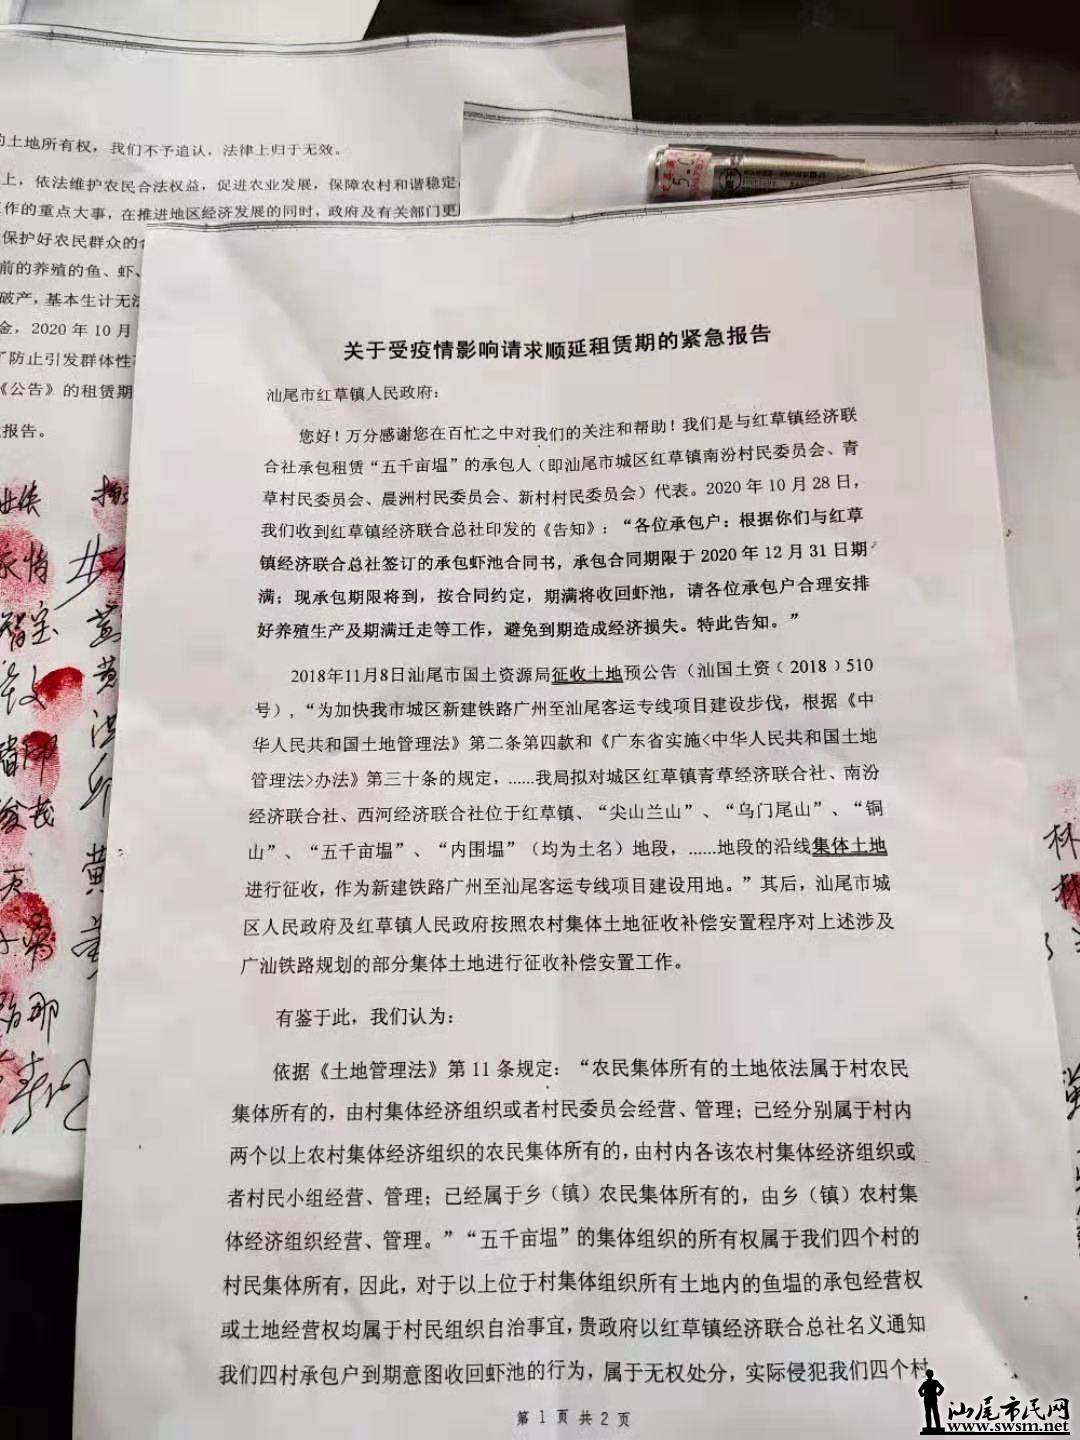 的土地所有权，我们不予追认，法律上归于无效。
上，依法维护农民合法权益，促进农业发展，保障农村和谐稳定
工作的重点大事，在推进地区经济发展的同时，政府及有关部门更
保护好农民群众的合
前的养殖的鱼、虾、
破产，基本生计无法
金，2020年10月
了防止引发群体性
《公告》的租赁期
报告。
5.0
关于受疫情影响请求顺延租赁期的紧急报告
汕尾市红草镇人民政府：
您好！万分感谢您在百忙之中对我们的关注和帮助！我们是与红草镇经济联
合社承包租赁“五千亩塭”的承包人（即汕尾市城区红草镇南汾村民委员会、青
草村民委员会、晨洲村民委员会、新村村民委员会）代表。2020年10月28日，
我们收到红草镇经济联合总社印发的《告知》：“各位承包户：根据你们与红草
镇经济联合总社签订的承包虾池合同书，承包合同期限于2020年12月31日期
满；现承包期限将到，按合同约定，期满将收回虾池，请各位承包户合理安排
好养殖生产及期满迁走等工作，避免到期造成经济损失。特此告知。”
2018年11月8日汕尾市国土资源局征收土地预公告（汕国土资（2018）510
号），“为加快我市城区新建铁路广州至汕尾客运专线项目建设步伐，根据《中
华人民共和国土地管理法》第二条第四款和《广东省实施<中华人民共和国土地
管理法>办法》第三十条的规定，......我局拟对城区红草镇青草经济联合社、南汾
经济联合社、西河经济联合社位于红草镇、“尖山兰山”、“乌门尾山”、“铜
山”、“五千亩塭”、“内围塭”（均为土名）地段，......地段的沿线集体土地
进行征收，作为新建铁路广州至汕尾客运专线项目建设用地。”其后，汕尾市城
区人民政府及红草镇人民政府按照农村集体土地征收补偿安置程序对上述涉及
广汕铁路规划的部分集体土地进行征收补偿安置工作。
有鉴于此，我们认为：
依据《土地管理法》第11条规定：“农民集体所有的土地依法属于村农民
集体所有的，由村集体经济组织或者村民委员会经营、管理；已经分别属于村内
两个以上农村集体经济组织的农民集体所有的，由村内各该农村集体经济组织或
者村民小组经营、管理；已经属于乡（镇）农民集体所有的，由乡（镇）农村集
体经济组织经营、管理。”“五千亩塭”的集体组织的所有权属于我们四个村的
村民集体所有，因此，对于以上位于村集体组织所有土地内的鱼塭的承包经营权
或土地经营权均属于村民组织自治事宜，贵政府以红草镇经济联合总社名义通知
我们四村承包户到期意图收回虾池的行为，属于无权处分，实际侵犯我们四个村
第 1 页 共 2 页
汕尾市民网
www.swsm.net